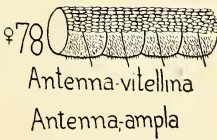 ♀78
Antenna-vitellina
Antenna-ampla